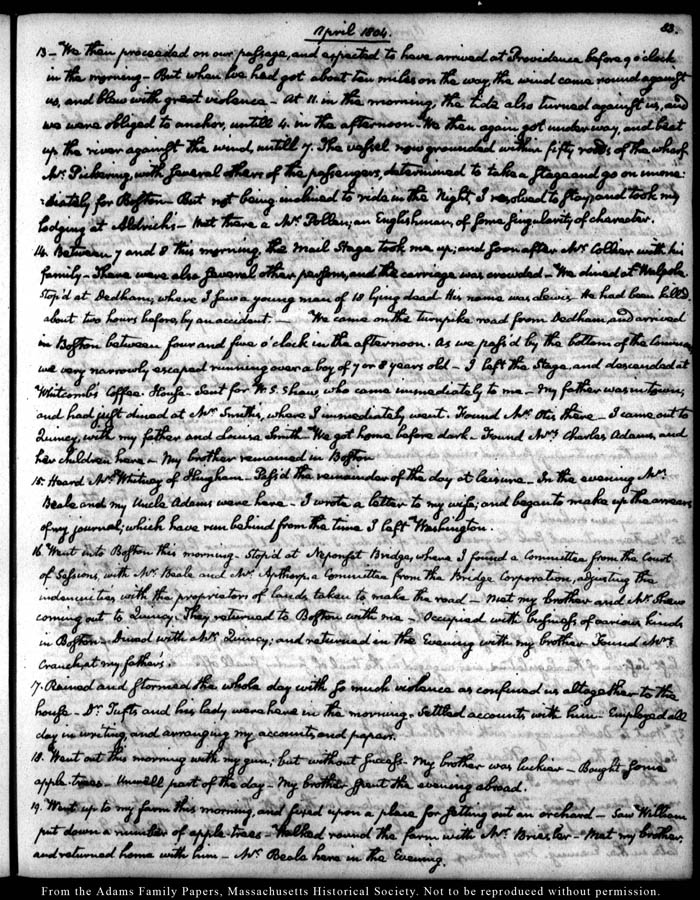 April 1804.
83.
13 – We then proceeded on our passage, and expected to have arrived at Providence before 9 o'clock
in the morning – But when we had got about ten miles on the way, the wind came round against
us, and blew with great violence – At 11. in the morning, the tide also turned against us, and
we were obliged to anchor, untill 4. in the afternoon – We then again got under way, and beat
up the river against the wind, untill 7. The vessel now grounded within fifty rods of the wharf
Mr. Pickering, with several others of the passengers, determined to take a stage and go on imme-
:diately for Boston – But not being inclined to ride in the Night, I resolved to stay, and took my
lodging at Aldrich's – Met there a Mr. Pollen; an Englishman, of some singularity of character.
14. Between 7 and 8 this morning, the Mail Stage took me up; and soon after Mr. Collier with his
family – There were also several other persons, and the carriage was crowded – We dined at Walpole
Stop'd at Dedham, where I saw a young man of 18 lying dead. His name was Lewis – He had been killed
about two hours before, by an accident. — We came on the turnpike road from Dedham, and arrived
in Boston between four and five o'clock in the afternoon. As we pass'd by the bottom of the Common
we very narrowly escaped running over a boy of 7 or 8 years old – I left the Stage, and descended at
Whitcomb's Coffee-House – Sent for W. S. Shaw, who came immediately to me – My father was in town,
and had just dined at Mr. Smith's, where I immediately went. Found Mr. Otis there – I came out to
Quincy, with my father and Louisa Smith – We got home before dark – Found Mrs. Charles Adams, and
her children here – My brother remained in Boston
15. Heard Mr. Whitney of Hingham – Pass'd the remainder of the day at leisure – In the evening Mr.
Beale and my Uncle Adams were here – I wrote a letter to my wife; and began to make up the arrears
of my journal; which have run behind from the time I left Washington.
16 Went into Boston this morning – Stop'd at Neponset Bridge, where I found a Committee from the Court
of Sessions, with Mr. Beale and Mr. Apthorp, a Committee from the Bridge Corporation, adjusting the
indemnities with the proprietors of lands taken to make the road – Met my brother and Mr. Shaw
coming out to Quincy. They returned to Boston with me – Occupied with business of various kinds
in Boston – Dined with Mr. Quincy; and returned in the Evening with my brother – Found Mrs.
Cranch, at my father's.
17. Rained and stormed the whole day with so much violence as confined us altogether to the
house – Dr. Tufts and his lady were here in the morning – Settled accounts with him – Employed all
day in writing, and arranging my accounts and papers.
18. Went out this morning with my gun; but without success – My brother was luckier – Bought some
apple-trees – Unwell part of the day – My brother spent the evening abroad.
19. Went up to my farm this morning, and fixed upon a place for setting out an orchard – Saw William
put down a number of apple-trees – Walked round the farm with Mr. Briesler – Met my brother,
and returned home with him – Mr. Beale here in the Evening.
From the Adams Family Papers, Massachusetts Historical Society. Not to be reproduced without permission.